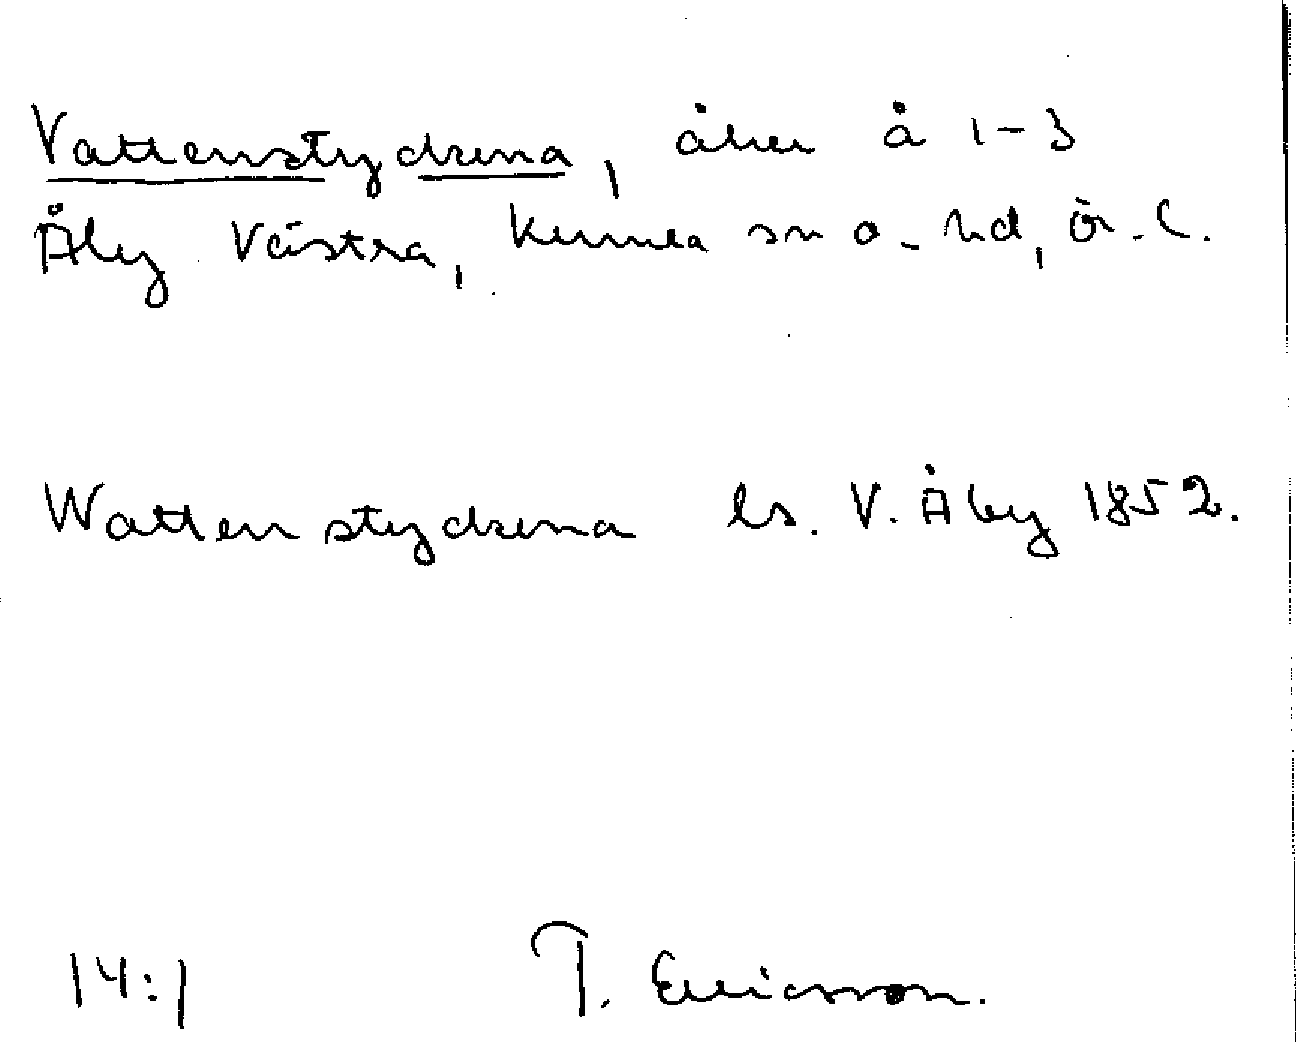 Vattenstyckena, åker å 1-3
Åby Västra, Kumla sn o. hd, Ör. l.
Watten styckena ls. V. Åby 1852.
14:1 T. Ericsson.